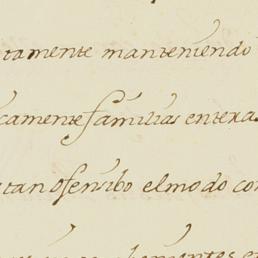 tamente manteniendo
camente familias entera
tan ofensibo el modo con